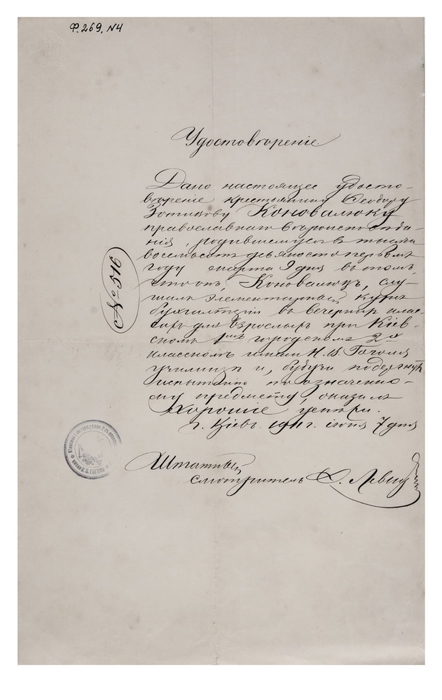 Ф. 269, N4
Удостовѣренiе
Дано настоящее удосто-
вѣренiе крестьянину Ѳеодору
Зотикову Коноваλюку
православнаго вѣроисповѣда-
нiя, родившемуся въ тысяча
восемьсотъ девяносто первомъ
году марта 9 дня въ томъ,
что онъ, Коновалюкъ, слу-
шалъ элементарный курсъ
бухгалтерiи въ вечернихъ клас-
сахъ для взрослыхъ при Кiев-
скомъ 1мъ городскомъ 2хъ
классномъ имени Н. В. Гоголя
училищѣ и, будучи подвергнутъ
испытанiю по означенно-
му предмету, оказалъ
хорошiе успѣхи.
г. Кiевъ 1911 г. 7 дня
№ 516
Штатный
смотритель